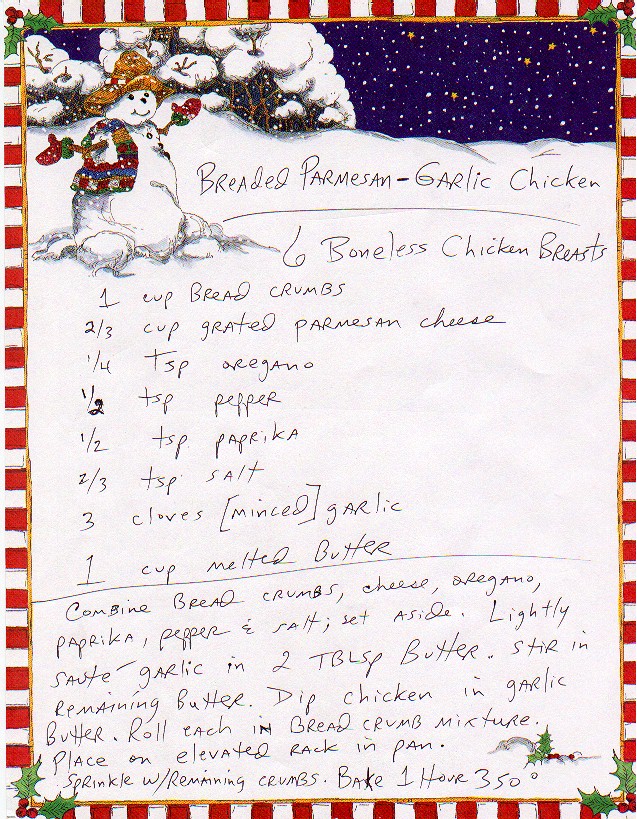 Breaded Parmesan-Garlic Chicken
6 Boneless Chicken Breasts
1 cup Bread crumbs
2/3 cup grated parmesan cheese
1/4 Tsp oregano
1/2 tsp pepper
1/2 tsp. paprika
2/3 tsp. salt
3 cloves [minced] garlic
1 cup melted Butter
Combine Bread crumbs, cheese, oregano,
paprika, pepper & salt; set aside. Lightly
sauté garlic in 2 TBLSp Butter. Stir in
remaining Butter. Dip chicken in garlic
Butter. Roll each in Bread crumb mixture.
Place on elevated rack in pan.
Sprinkle w/Remaining crumbs. Bake 1 Hour 350°